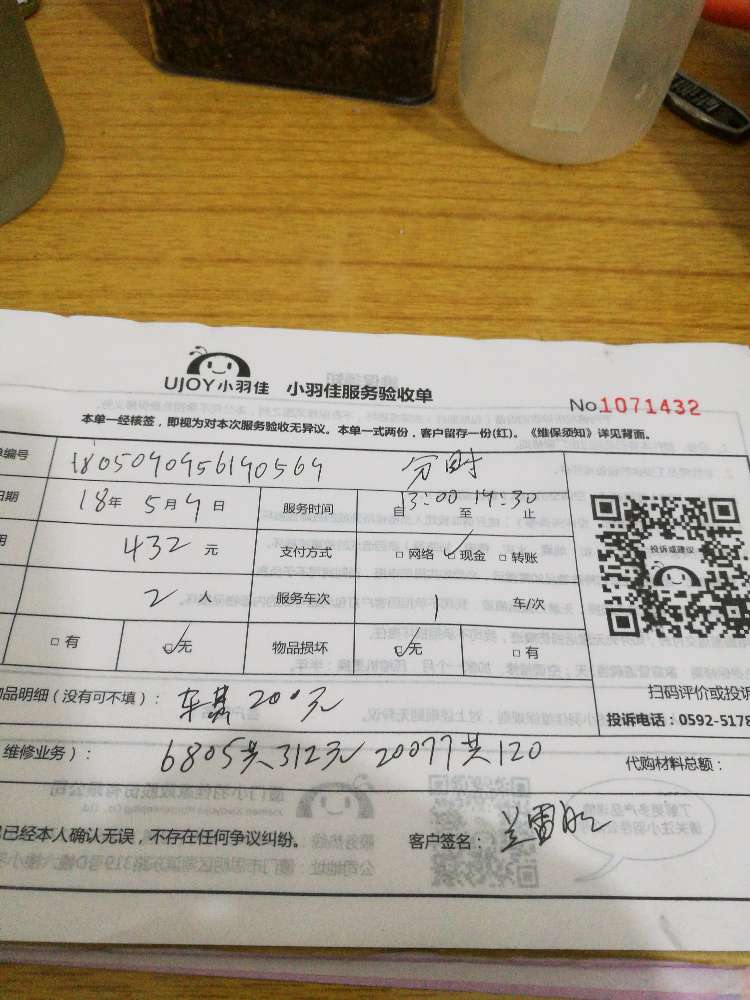 UJOY小羽佳 小羽佳服务验收单
No.1071432
本单一经核签，即视为对本次服务验收无异议。本单一式两份，客户留存一份(红)。《维保须知》详见背面。
编号 分时
日期 18年 5月9日 服务时间 自 13:00 至 14:30 止
432 元 支付方式 网络 现金 转账
2 人 服务车次 1 车/次
有 无 物品损坏 无 有
投诉或建议
扫码评价或投诉
投诉电话：0592-5178
品明细（没有可不填）： 200元
维修业务）： 6805共312元 20077共120
代购材料总额：
已经本人确认无误，不存在任何争议纠纷。 客户签名：